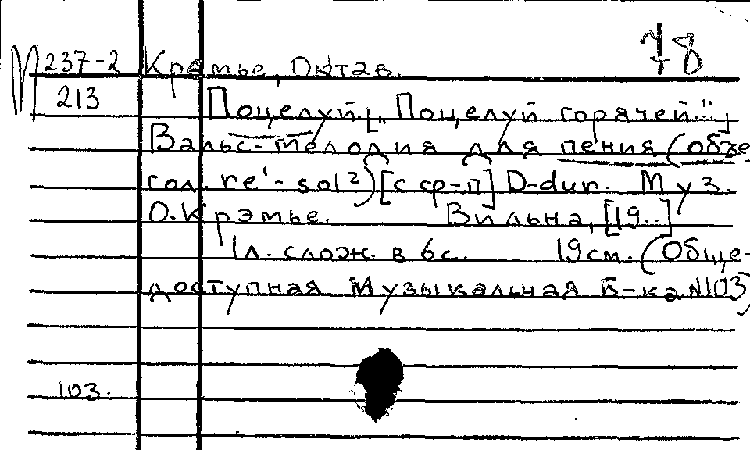 78
М 237-2 Крэмье, Октав.
213 Поцелуй ["Поцелуй горячей"]
Вальс-мелодия для пения (объе
гол. re¹-sol²) [с ф-п] D-dur. Муз.
О. Крэмье. Вильна, [19..]
1л. слож. в 6с. 19см. (Обще-
доступная Музыкальная Б-ка №103)
103.